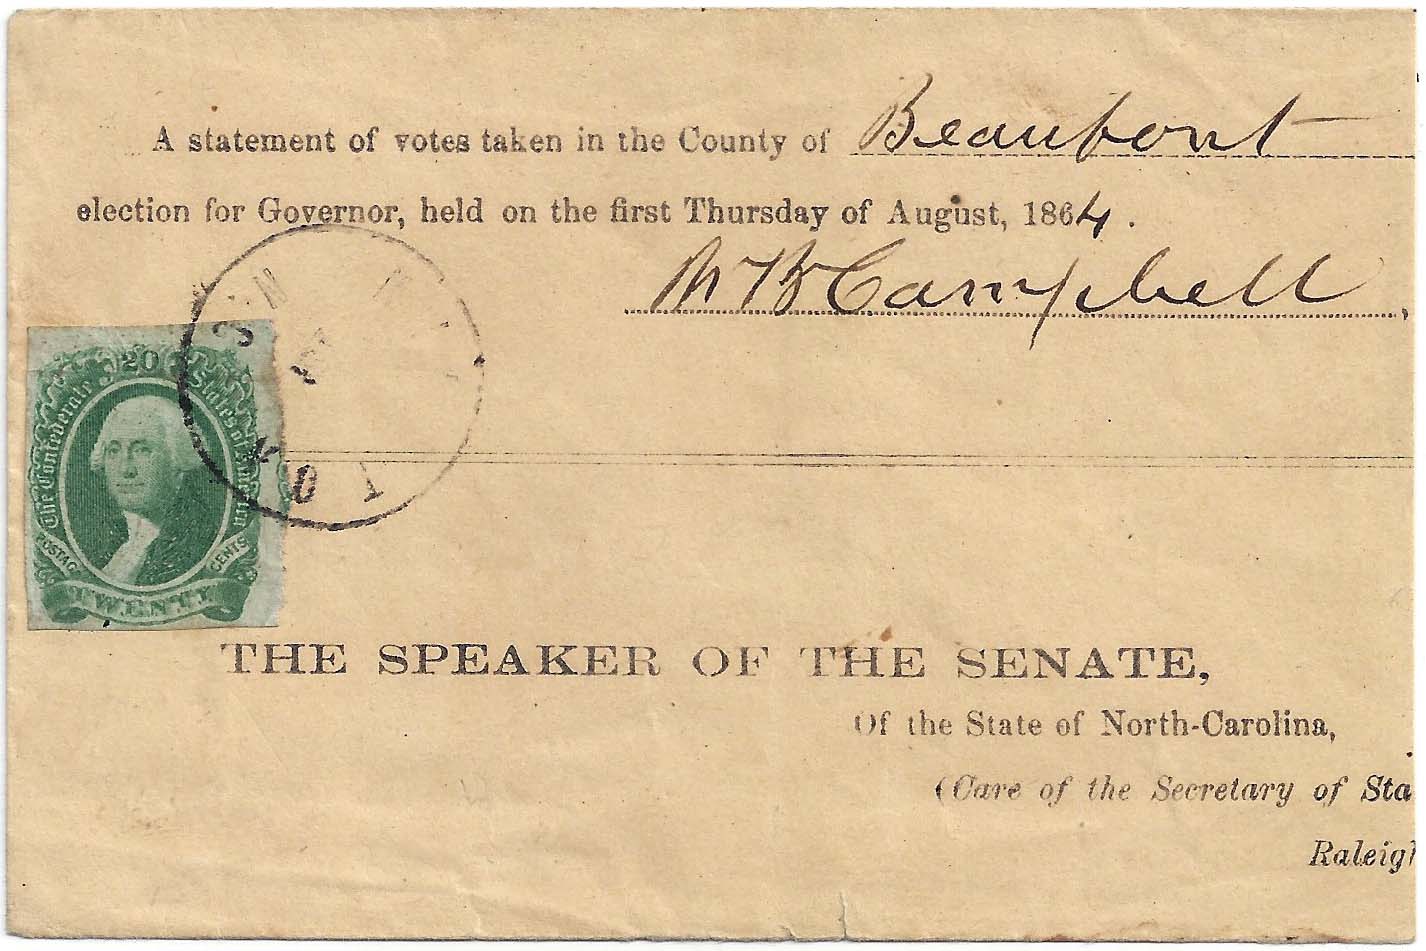 A statement of votes taken in the County of Beaufort
election for Governor, held on the first Thursday of August, 1864.
W B Campbell,
20
The Confederate States of America
POSTAGE CENTS
TWENTY
THE SPEAKER OF THE SENATE,
Of the State of North-Carolina,
(Care of the Secretary of Sta
Raleigh